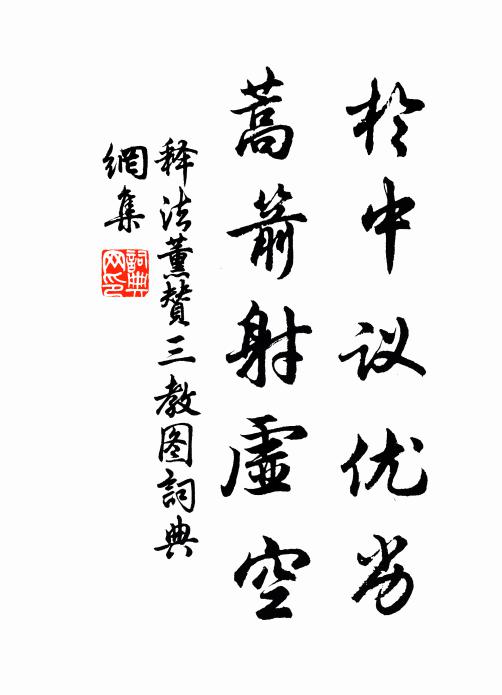 於中议优劣
蒿箭射虚空
释法薰赞三教图詞典
網集
詞典
网印